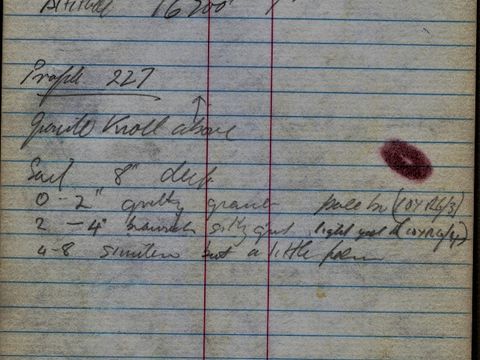 Altitude 16200'
Profile 227
Granite Knoll above
Soil 8" deep
0-2" gritty pale br (10YR6/3)
2-4" brownish silty grit, light (10YR6/4)
4-8 similar but a little